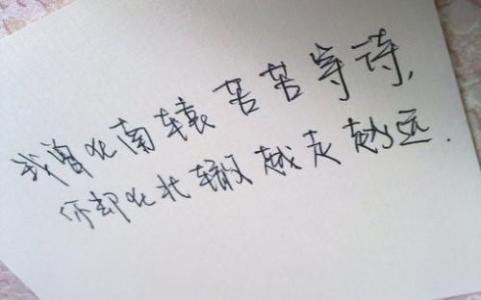 我曾北南辕苦苦等待,
你却在北辙越走越远.